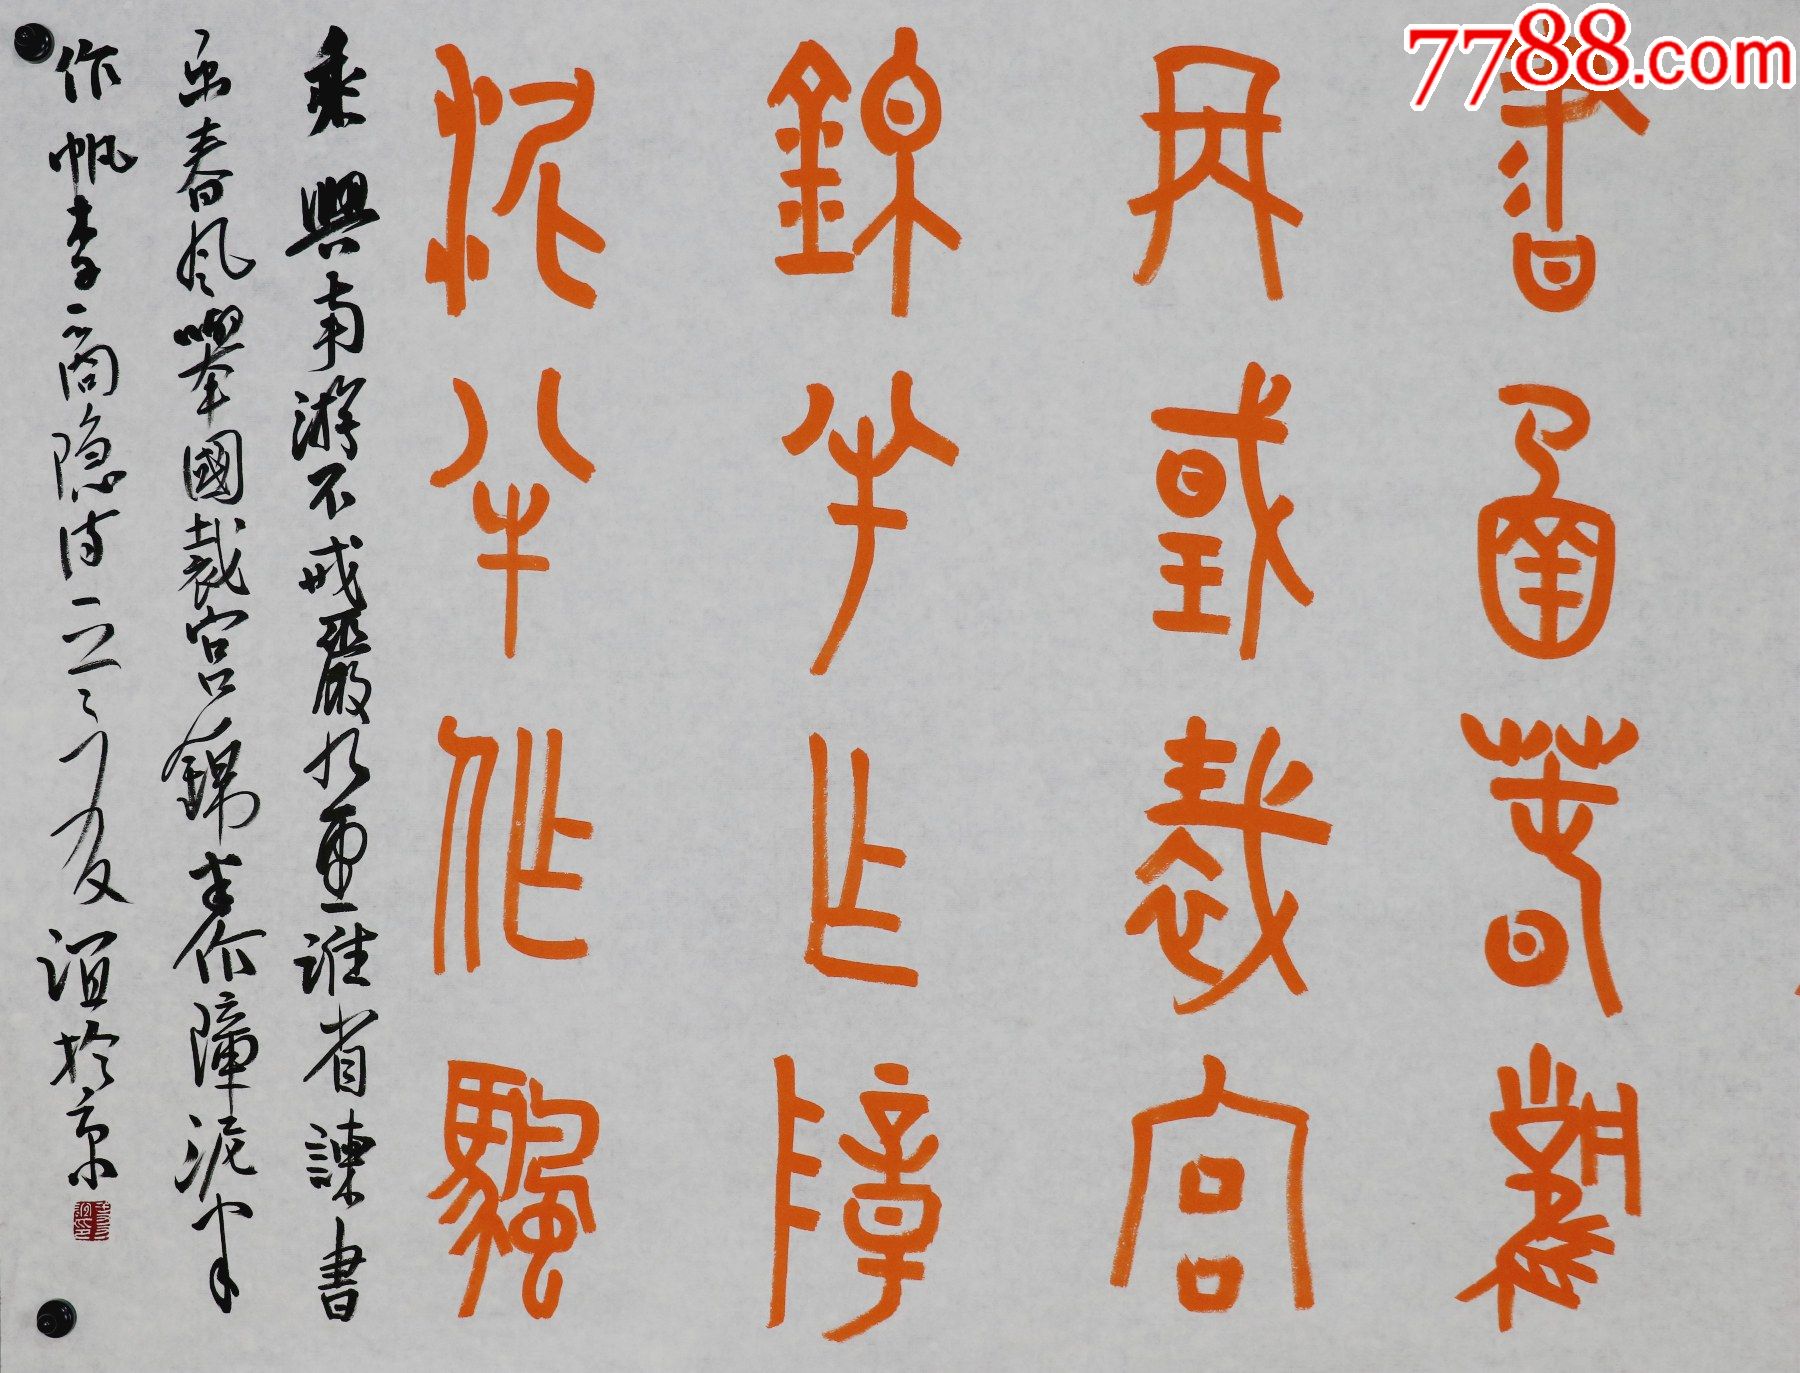 7788.com
書函春風
舉國裁宮
錦半作障
泥半作帆
乘興南游不戒嚴九重誰省諫書
函春風舉國裁宮錦半作障泥半
作帆李商隐诗 友谊於京